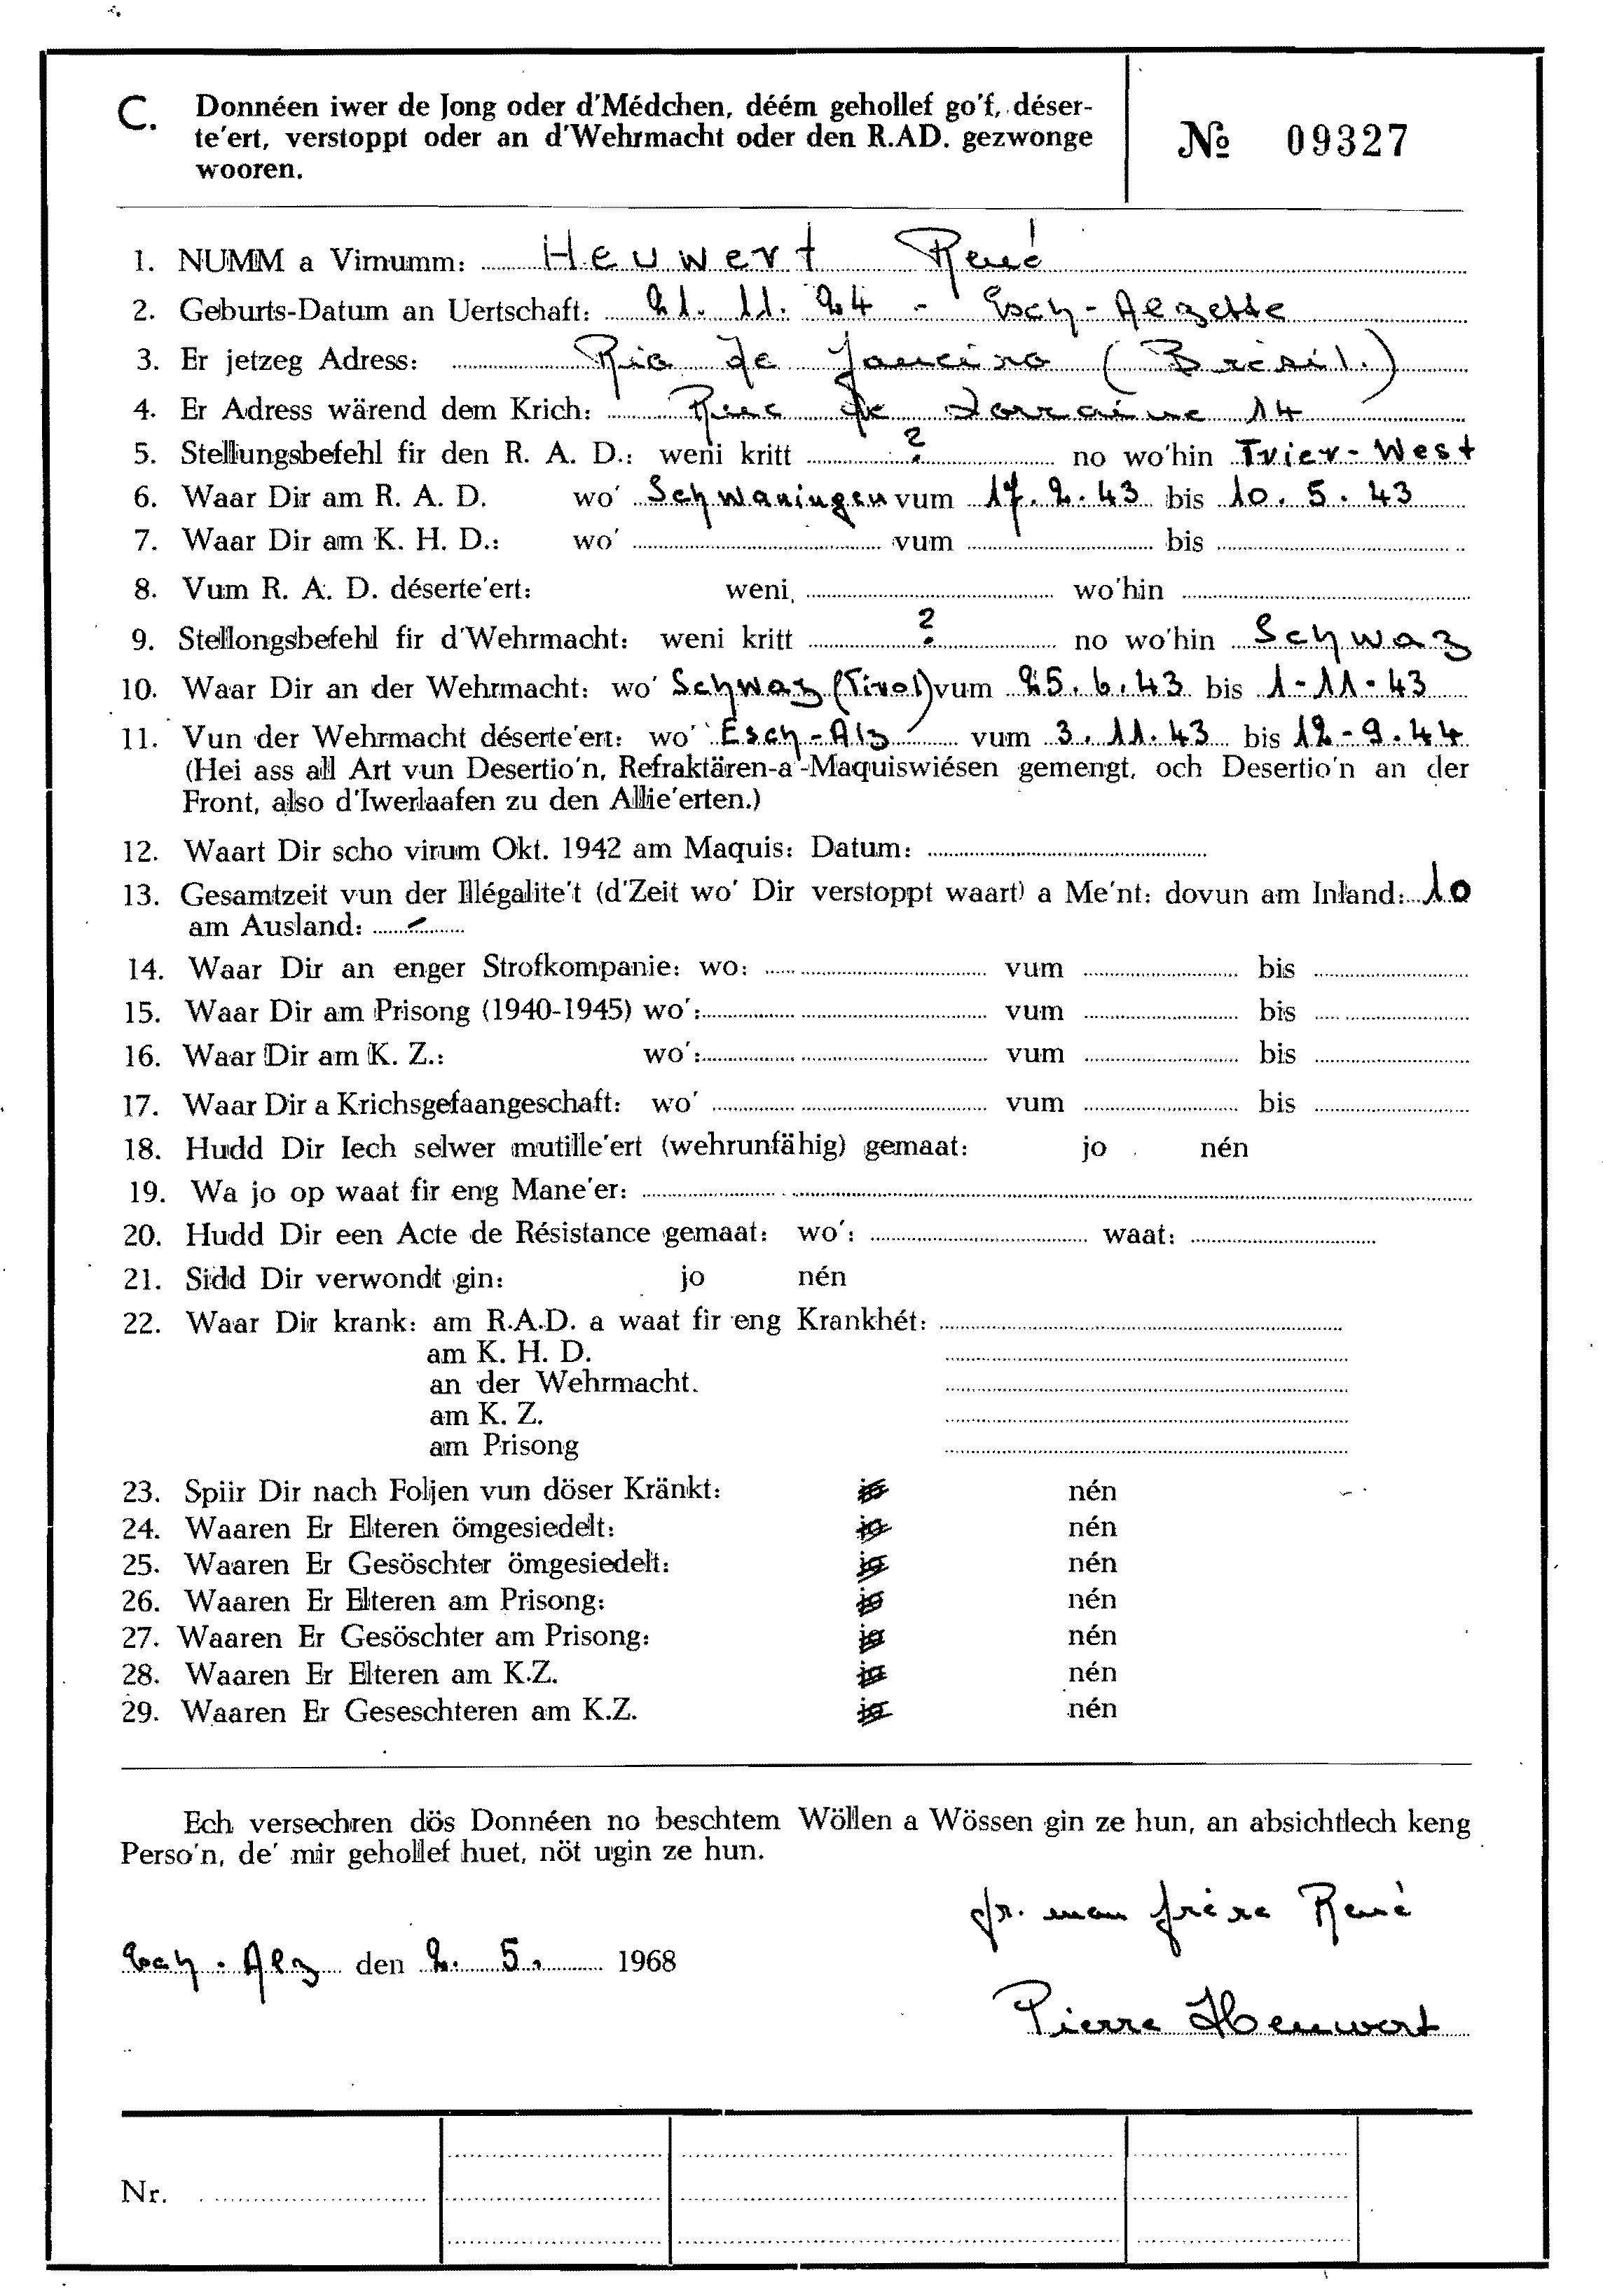 C. Donnéen iwer de Jong oder d'Médchen, déém gehollef go'f, déser-
te'ert, verstoppt oder an d'Wehrmacht oder den R.AD. gezwonge
wooren.
№ 09327
1. NUMM a Virnumm: Heuwert René
2. Geburts-Datum an Uertschaft: 21. 11. 24 - Esch-Alzette
3. Er jetzeg Adress: Rio de Janeiro (Brésil.)
4. Er Adress wärend dem Krich: Rue de Lorraine 14
5. Stellungsbefehl fir den R. A. D.: weni kritt ? no wo'hin Trier-West
6. Waar Dir am R. A. D. wo' Schwaningen vum 17. 2. 43 bis 10. 5. 43
7. Waar Dir am K. H. D.: wo' vum bis
8. Vum R. A. D. déserte'ert: weni wo'hin
9. Stellongsbefehl fir d'Wehrmacht: weni kritt ? no wo'hin Schwaz
10. Waar Dir an der Wehrmacht: wo' Schwaz (Tirol) vum 25. 6. 43 bis 1-11-43
11. Vun der Wehrmacht déserte'ert: wo' Esch-Alz vum 3. 11. 43 bis 12-9.44
(Hei ass all Art vun Desertio'n, Refraktären-a'-Maquiswiésen gemengt, och Desertio'n an der
Front, also d'Iwerlaafen zu den Allie'erten.)
12. Waart Dir scho virum Okt. 1942 am Maquis: Datum:
13. Gesamtzeit vun der Illégalite't (d'Zeit wo' Dir verstoppt waart) a Me'nt: dovun am Inland: 10
am Ausland: -
14. Waar Dir an enger Strofkompanie: wo: vum bis
15. Waar Dir am Prisong (1940-1945) wo': vum bis
16. Waar Dir am K. Z.: wo': vum bis
17. Waar Dir a Krichsgefaangeschaft: wo' vum bis
18. Hudd Dir Iech selwer mutille'ert (wehrunfähig) gemaat: jo nén
19. Wa jo op waat fir eng Mane'er:
20. Hudd Dir een Acte de Résistance gemaat: wo': waat:
21. Sidd Dir verwondt gin: jo nén
22. Waar Dir krank: am R.A.D. a waat fir eng Krankhét:
am K. H. D.
an der Wehrmacht.
am K. Z.
am Prisong
23. Spiir Dir nach Foljen vun döser Kränkt: jo nén
24. Waaren Er Elteren ömgesiedelt: jo nén
25. Waaren Er Gesöschter ömgesiedelt: jo nén
26. Waaren Er Elteren am Prisong: jo nén
27. Waaren Er Gesöschter am Prisong: jo nén
28. Waaren Er Elteren am K.Z. jo nén
29. Waaren Er Geseschteren am K.Z. jo nén
Ech versechren dös Donnéen no beschtem Wöllen a Wössen gin ze hun, an absichtlech keng
Perso'n, de' mir gehollef huet, nöt ugin ze hun.
fr. mon frère René
Esch-Alz den 2. 5. 1968
Pierre Heuwert
Nr.